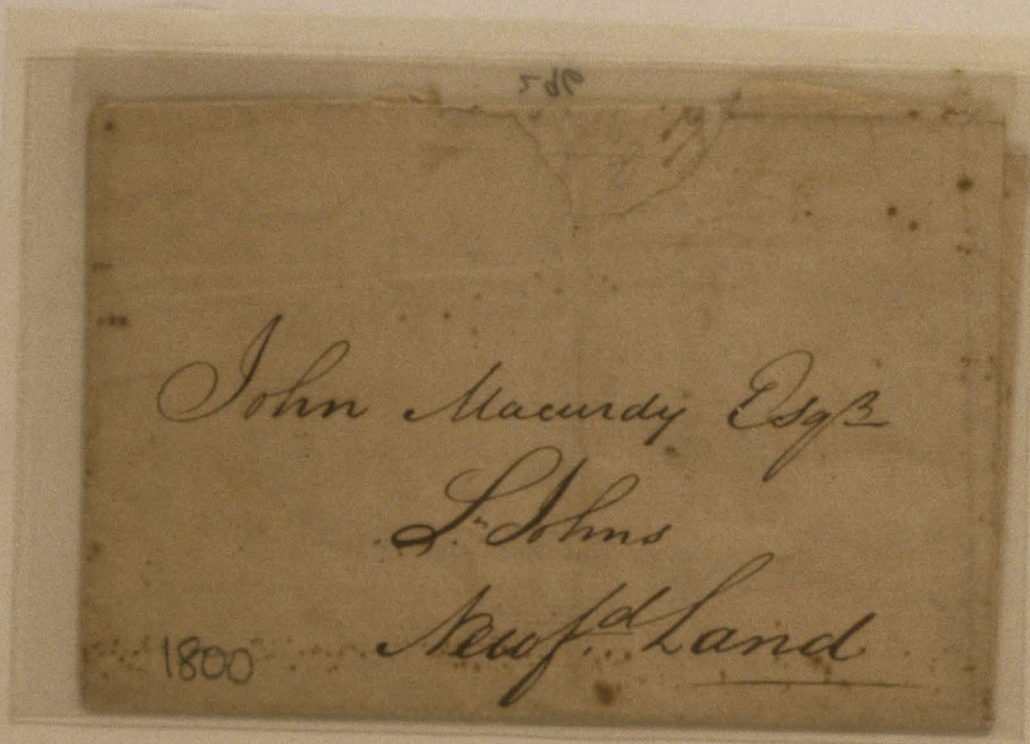 John Macurdy Esqr
St. Johns
Newfd. Land
1800